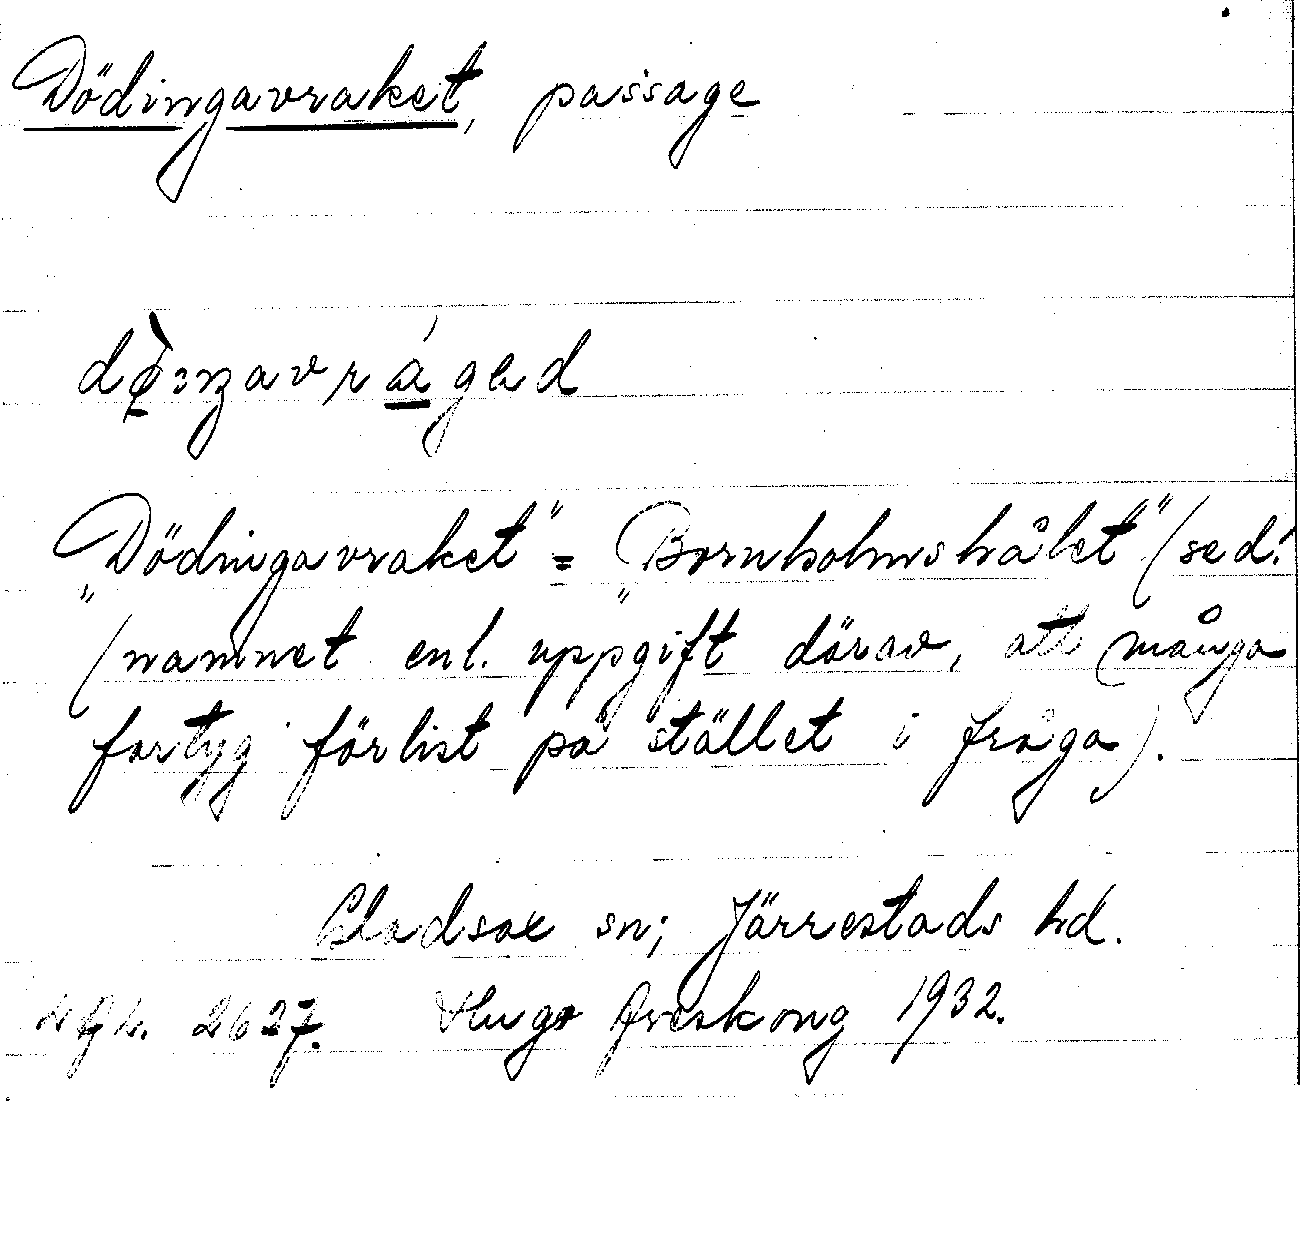 Dödingavraket, passage
„Dödingavraket" = „Bornholmshålet" (se d!
(namnet enl. uppgift därav, att många
fartyg förlist på stället i fråga).
Gladsax sn; Järrestads hd.
2627. Hugo Areskoug 1932.